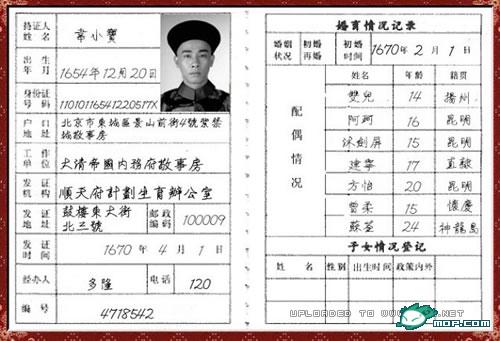 持证人姓名 韦小寶
出生年月 1654年12月20日
身份证号码 11010116541220517X
户口地址 北京市東城區景山前街4號紫禁城敬事房
工作单位 大清帝國内務府敬事房
发证机构 順天府計劃生育辦公室
发证地址 鼓樓東大街北三號 邮政编码 100009
发证时间 1670年4月1日
经办人 多隆 电话 120
编号 4718542
婚育情况记录
婚姻状况 初婚再婚 初婚时间 1670年2月1日
配偶情况
姓名 年龄 籍贯
雙兒 14 揚州
阿珂 16 昆明
沐劍屏 15 昆明
建寧 17 直隸
方怡 20 昆明
曾柔 15 懷慶
蘇荃 24 神龍島
子女情况登记
姓名 性别 出生时间 政策内外
UPLOADED TO
.NET
MOP.COM